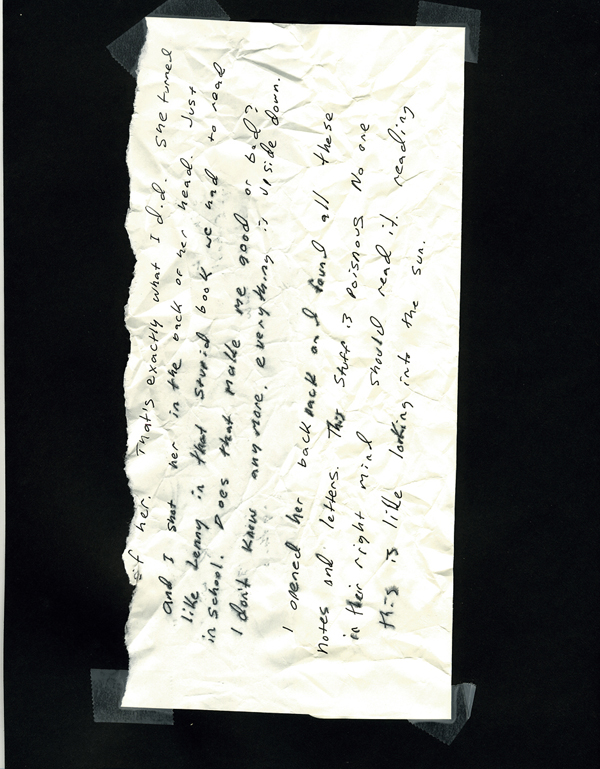 of her. That's exactly what I did. She turned
and I shot her in the back of her head. Just
like Lenny in that stupid book we had to read
in school. Does that make me good or bad?
I don't know any more. everything is upside down.
I opened her backpack and found all these
notes and letters. This stuff is poisnous No one
in their right mind should read it. reading
this is like looking into the sun.